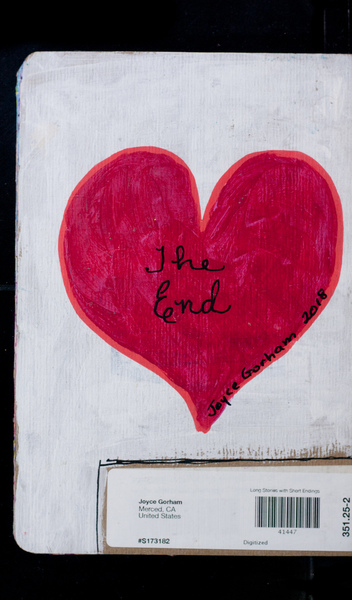 The
End
Joyce Gorham 2018
Long Stories with Short Endings
Joyce Gorham
Merced, CA
United States
41447
#S173182
Digitized
351.25-2